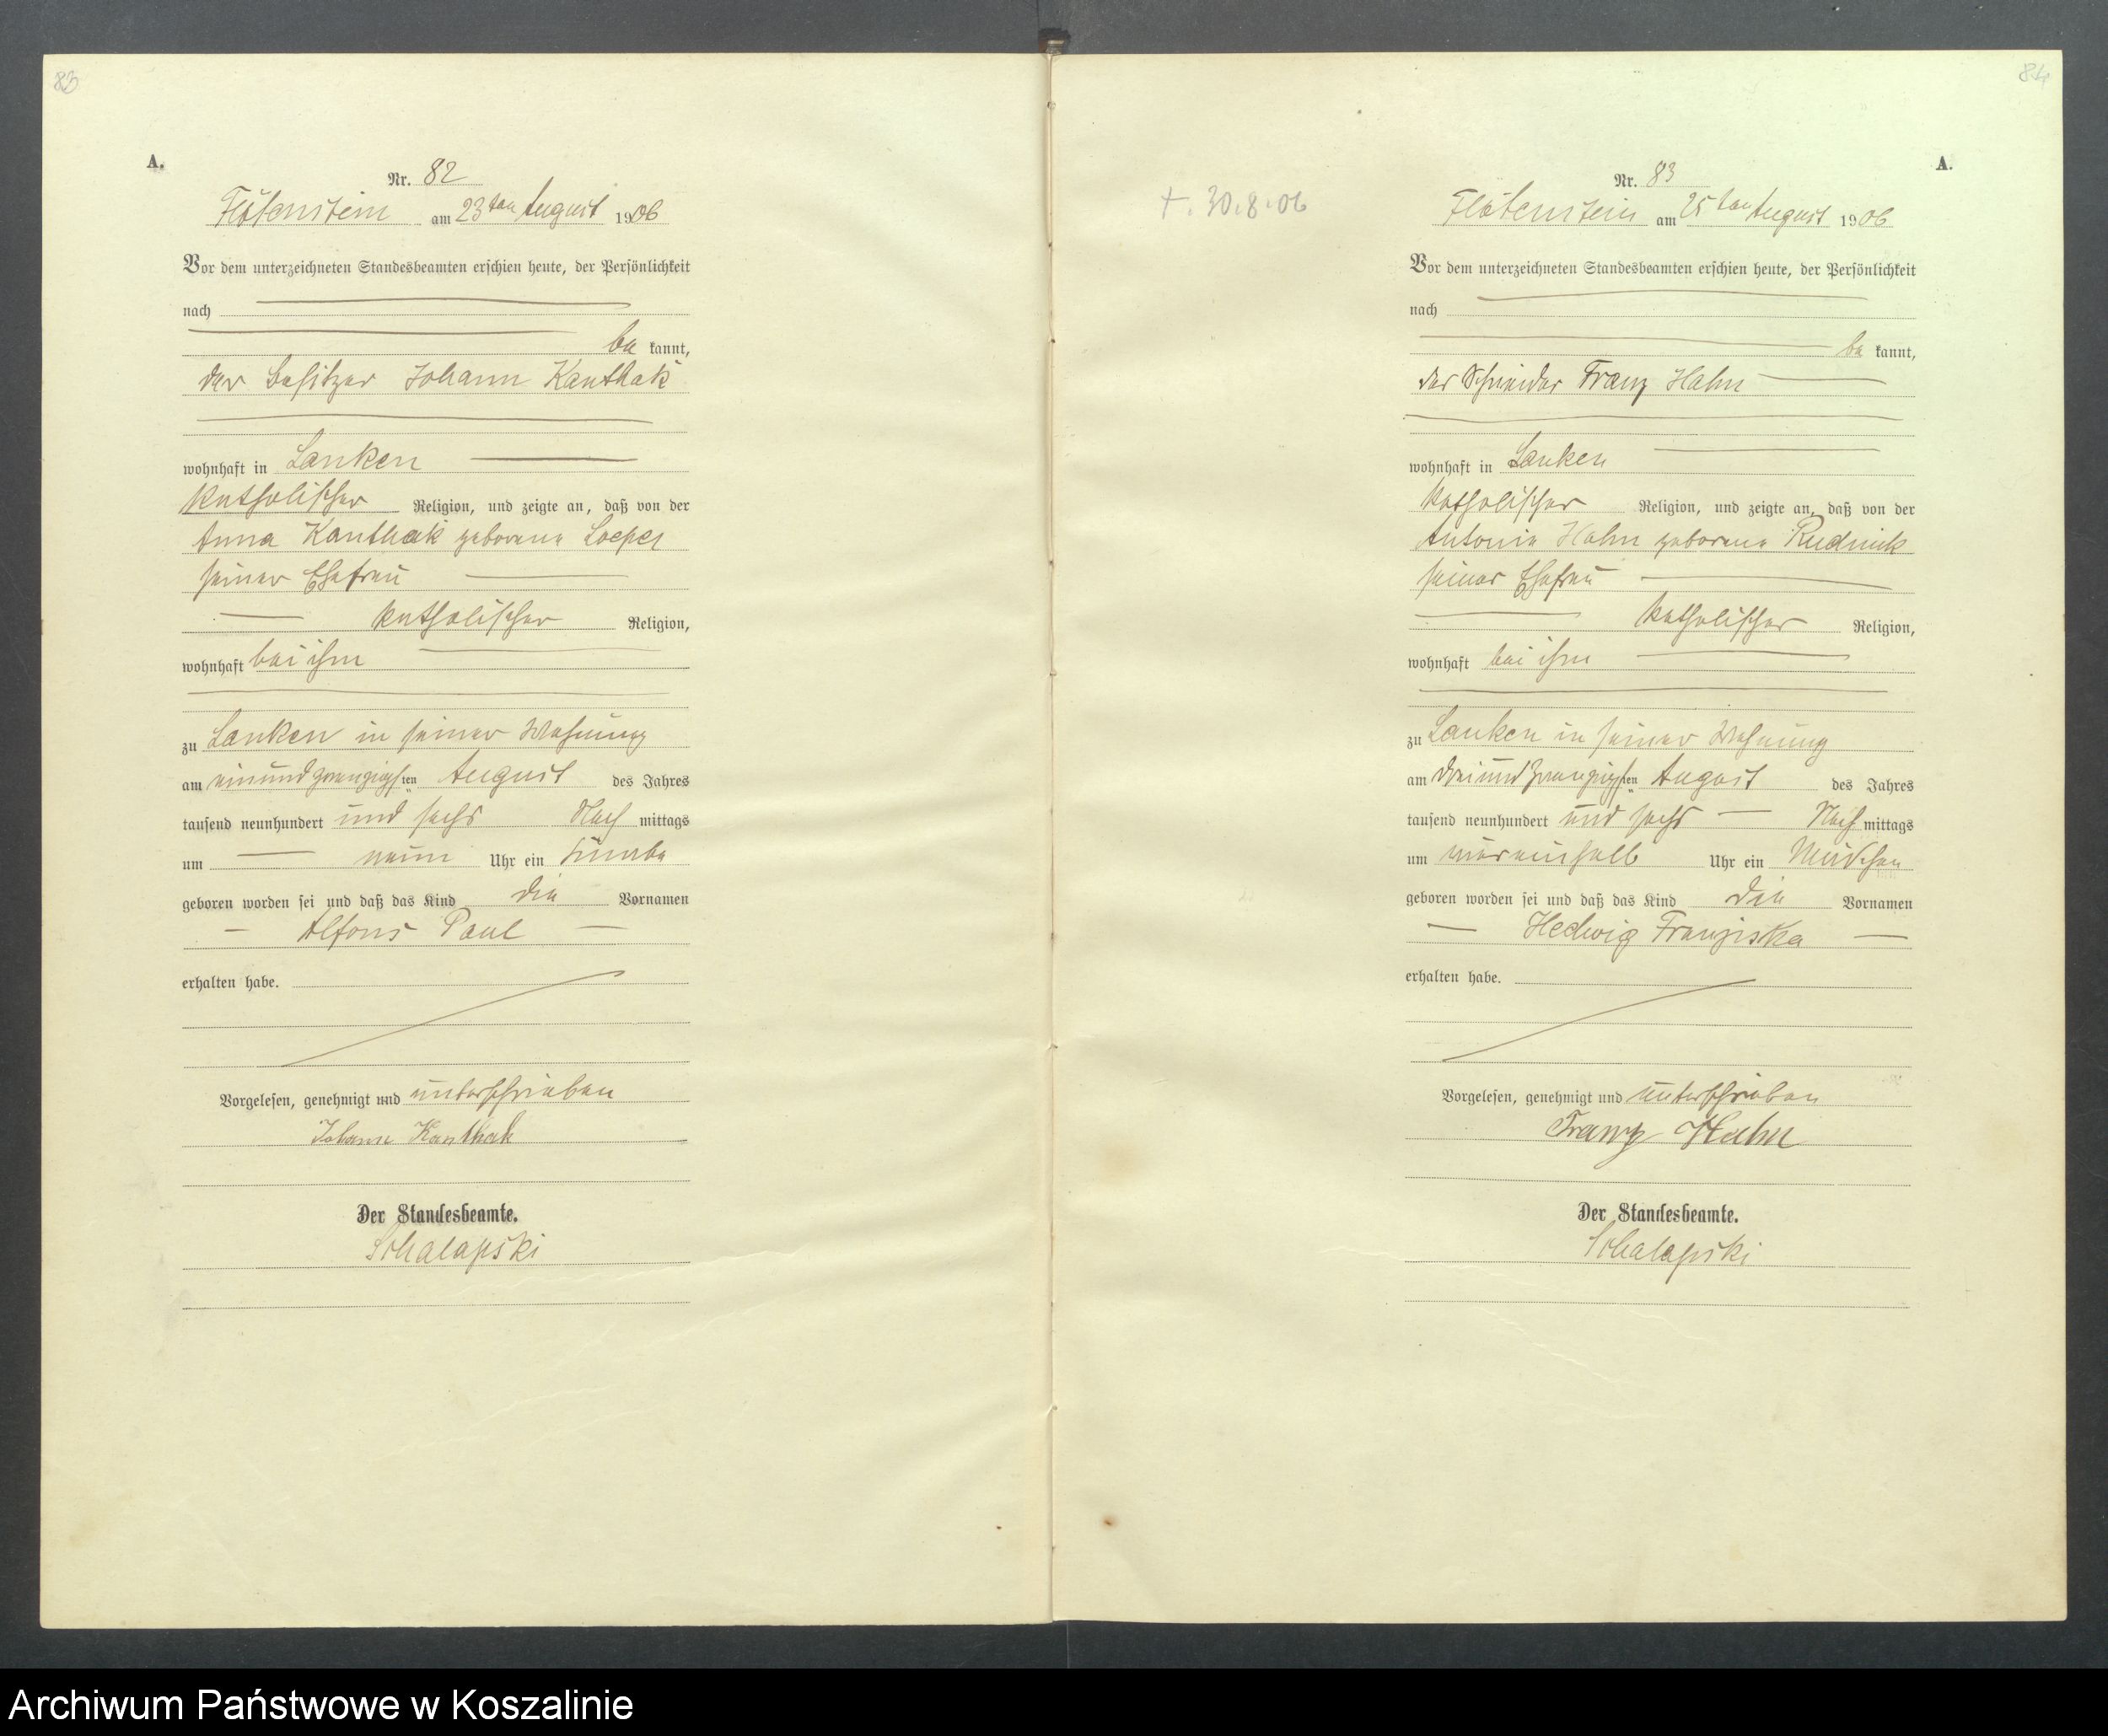 83
A.
Nr. 82
Flötenstein am 23ten August 1906
Vor dem unterzeichneten Standesbeamten erschien heute, der Persönlichkeit
nach
be kannt,
der Besitzer Johann Kanthak
wohnhaft in Lanken
katholischer Religion, und zeigte an, daß von der
Anna Kanthak geborene Loeper
seiner Ehefrau
katholischer Religion,
wohnhaft bei ihm
zu Lanken in seiner Wohnung
am einundzwanzigsten August des Jahres
tausend neunhundert und sechs Nach mittags
um neun Uhr ein Knabe
geboren worden sei und daß das Kind die Vornamen
Alfons Paul
erhalten habe.
Vorgelesen, genehmigt und unterschrieben
Johann Kanthak
Der Standesbeamte.
Schalapski
84
A.
+. 30.8.06
Nr. 83
Flötenstein am 25ten August 1906
Vor dem unterzeichneten Standesbeamten erschien heute, der Persönlichkeit
nach
be kannt,
der Schneider Franz Hahn
wohnhaft in Lanken
katholischer Religion, und zeigte an, daß von der
Antonie Hahn geborene Rudnick
seiner Ehefrau
katholischer Religion,
wohnhaft bei ihm
zu Lanken in seiner Wohnung
am dreiundzwanzigsten August des Jahres
tausend neunhundert und sechs Nach mittags
um viereinhalb Uhr ein Mädchen
geboren worden sei und daß das Kind die Vornamen
Hedwig Franziska
erhalten habe.
Vorgelesen, genehmigt und unterschrieben
Franz Hahn
Der Standesbeamte.
Schalapski
Archiwum Państwowe w Koszalinie